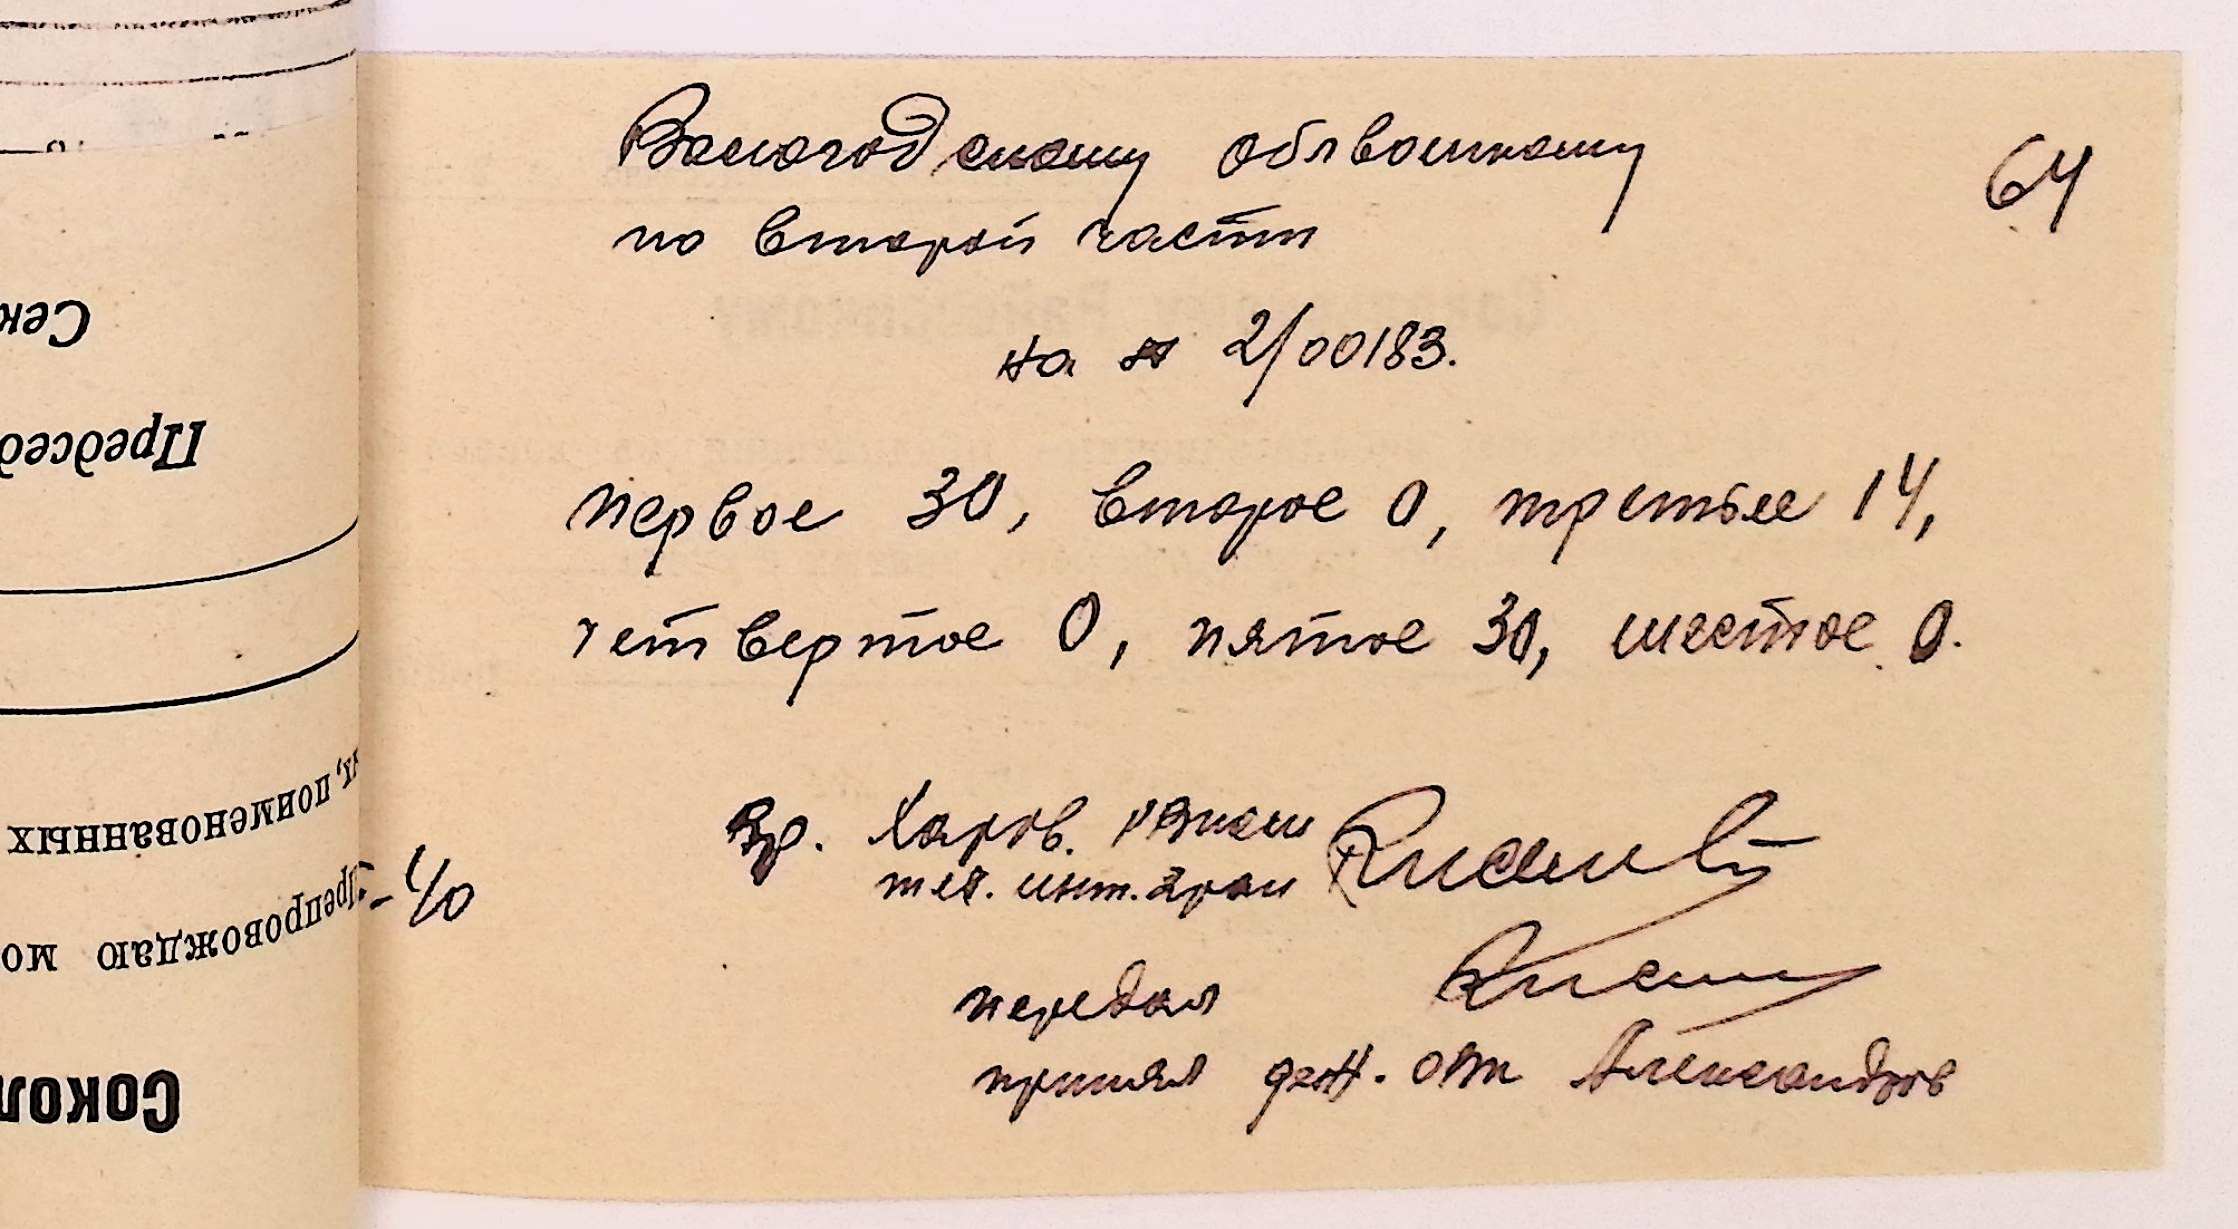 64
Вологодскому облвоенкому
по второй части
на № 2/00183.
первое 30, второе 0, третье 14,
четвертое 0, пятое 30, шестое 0.
Вр. Харов. РВком
тех. инт. 2 ранг
передал
принял деж. ОВК Александров
Сек
Председ
, поименованных
Препровождаю мо
Сокол